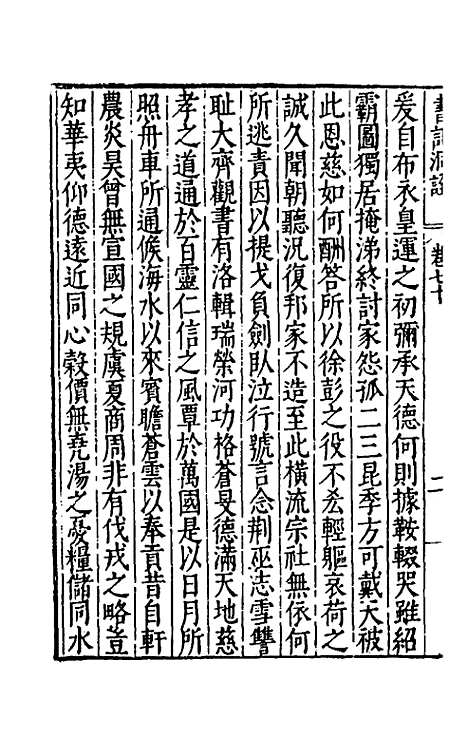 書記洞詮 卷七十 二
爰自布衣皇運之初彌承天德何則據鞍輟哭雖紹
霸圖獨居掩涕終討家怨孤二三昆季方可戴天被
此恩慈如何酬答所以徐彭之役不忝輕軀哀荷之
誠久聞朝聽況復邦家不造至此橫流宗社無依何
所逃責因以提戈負劍臥泣行號言念荆巫志雪讐
耻大齊觀書有洛輯瑞榮河功格蒼旻德滿天地慈
孝之道通於百靈仁信之風覃於萬國是以日月所
照舟車所通候海水以來賓瞻蒼雲以奉貢昔自軒
農炎昊曾無宣國之規虞夏商周非有伐戎之略豈
知華夷仰德遠近同心穀價無堯湯之憂糧儲同水